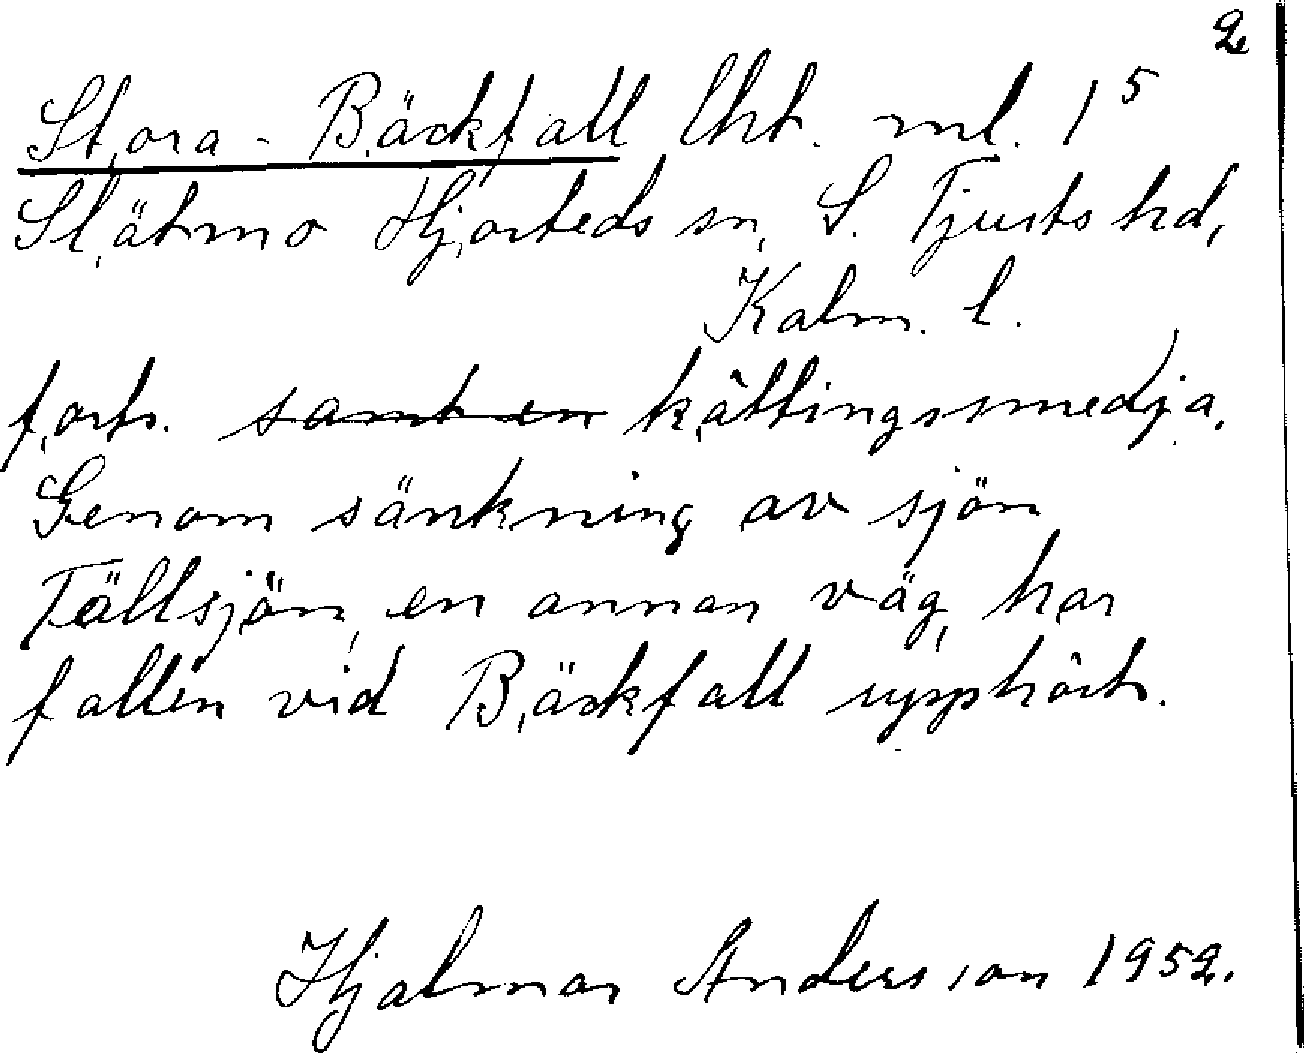 2
Stora-Bäckfall Cht. ml. 1⁵
Slätmo Hjorteds sn, S. Tjusts hd,
Kalm. l.
forts. samt en kättingsmedja.
Genom sänkning av sjön
Fällsjön, en annan väg, har
fallen vid Bäckfall upphört.
Hjalmar Andersson 1952.